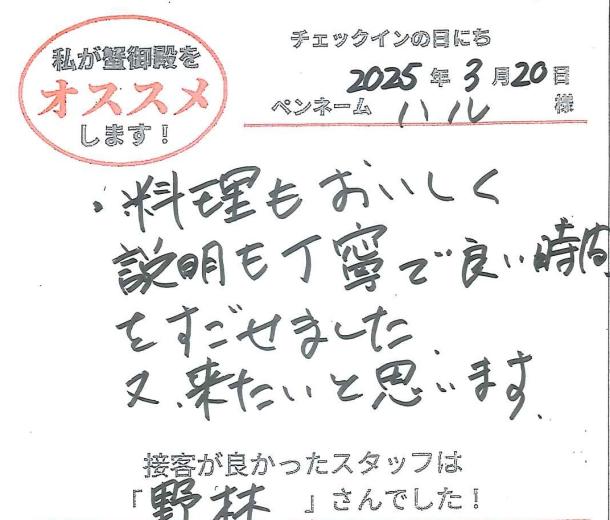 私が蟹御殿を
オススメ
します！
チェックインの日にち
2025年3月20日
ペンネーム ハル 様
・料理もおいしく
説明も丁寧で良い時間
をすごせました.
又、来たいと思います.
接客が良かったスタッフは
「野林」さんでした！